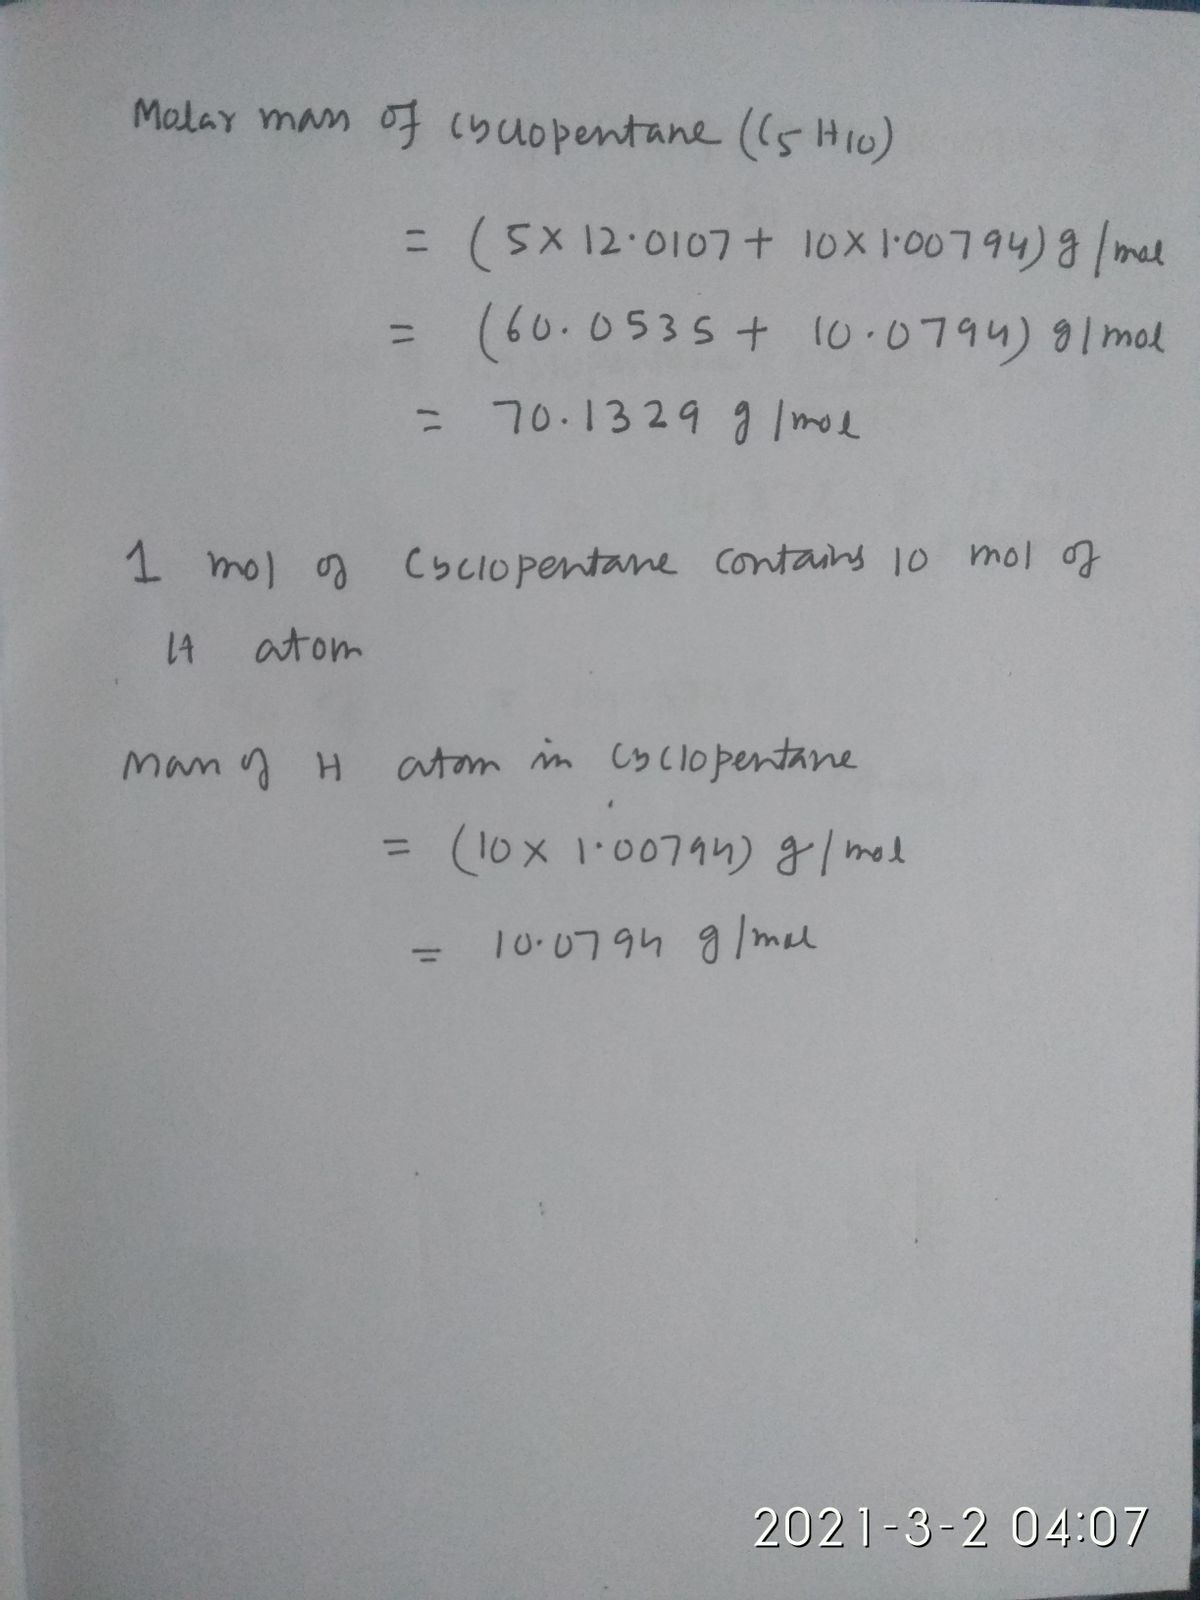 Molar mass of cyclopentane (C5H10)
= (5 x 12.0107 + 10 x 1.00794) g/mol
= (60.0535 + 10.0794) g/mol
= 70.1329 g/mol
1 mol of cyclopentane contains 10 mol of
H atom
Mass of H atom in cyclopentane
= (10 x 1.00794) g/mol
= 10.0794 g/mol
2021-3-2 04:07